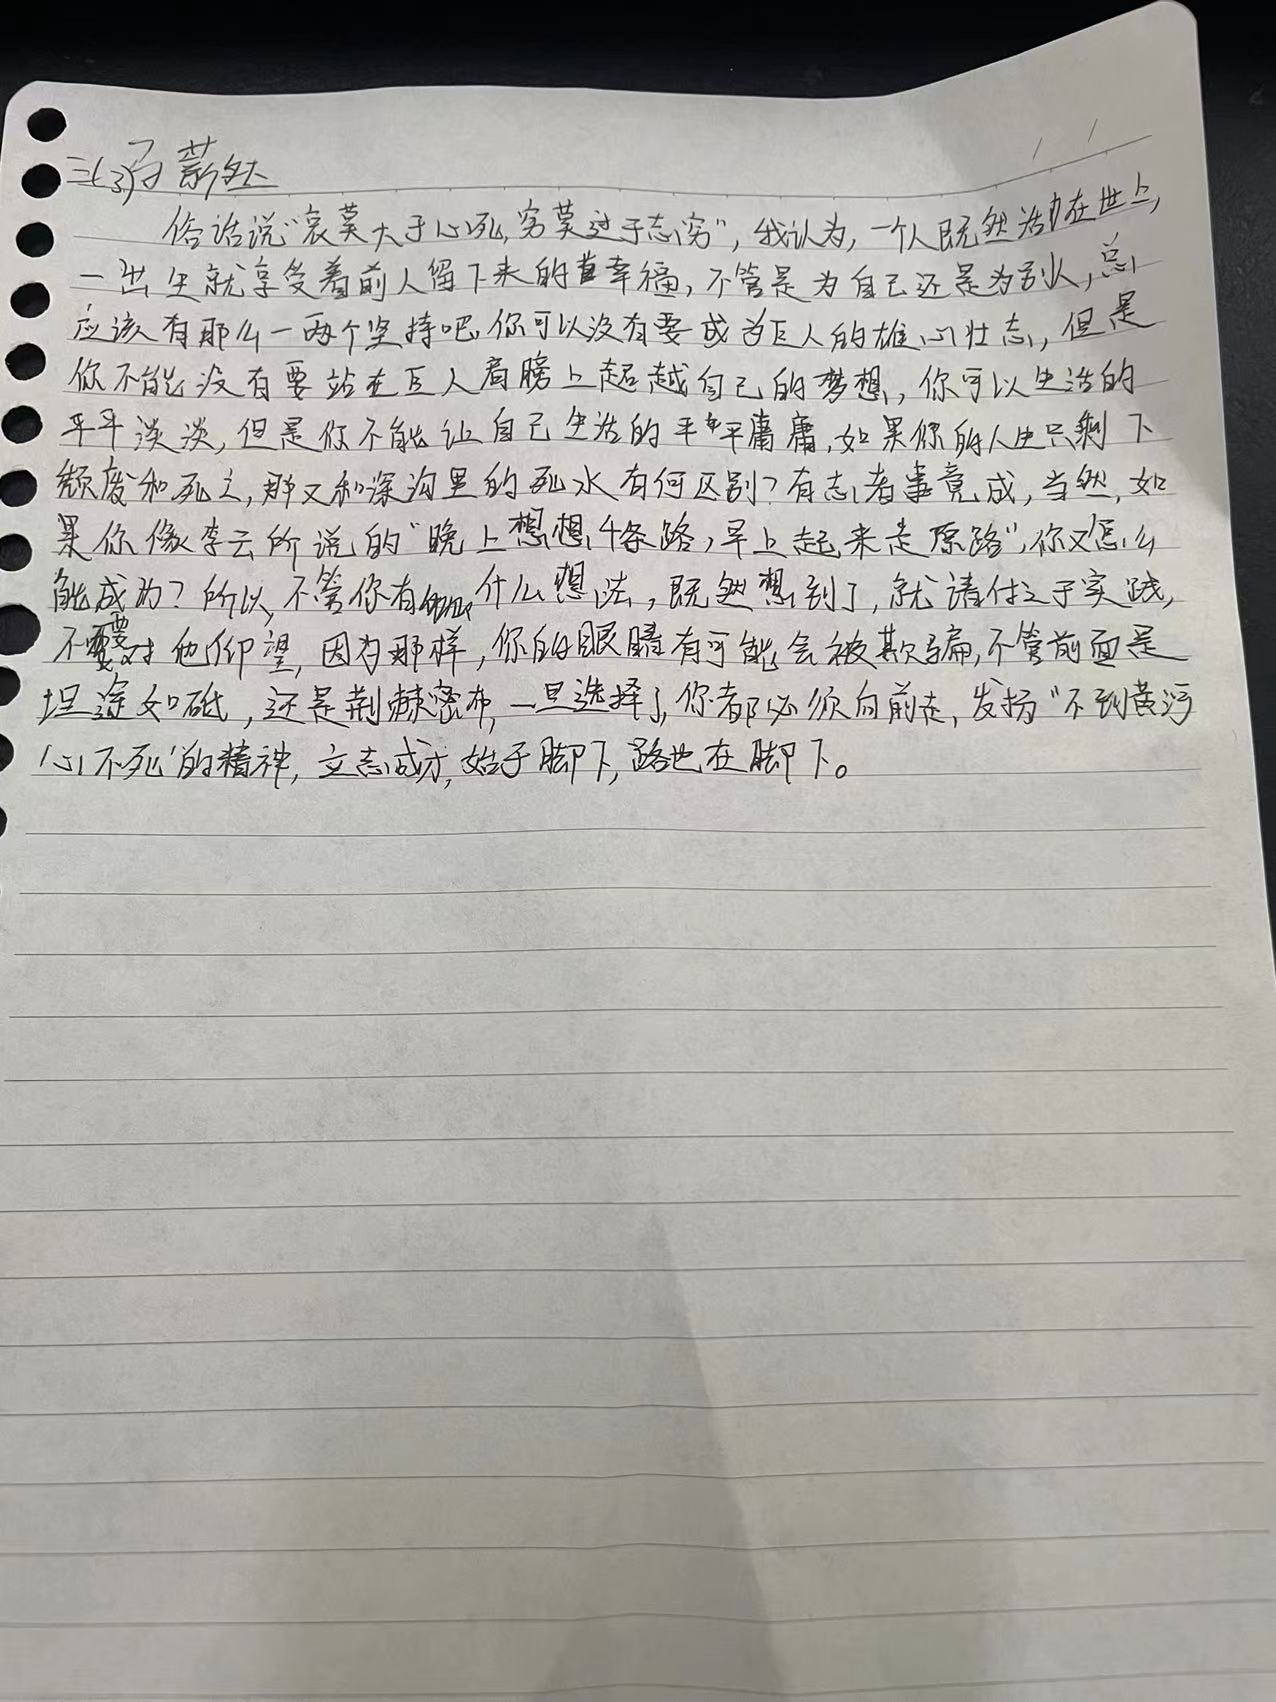 三(3)
俗话说"哀莫大于心死,穷莫过于志穷",我认为,一个人既然活在世上,
一出生就享受着前人留下来的幸福,不管是为自己还是为别人,总
应该有那么一两个坚持吧,你可以没有要成为巨人的雄心壮志,但是
你不能没有要站在巨人肩膀上超越自己的梦想,你可以生活的
平平淡淡,但是你不能让自己生活的平平庸庸,如果你的人生只剩下
颓废和死亡,那又和深沟里的死水有何区别?有志者事竟成,当然,如
果你像李云所说的"晚上想想千条路,早上起来走原路",你又怎么
能成功?所以,不管你有什么想法,既然想到了,就请付之于实践,
不要对他仰望,因为那样,你的眼睛有可能会被欺骗,不管前面是
坦途如砥,还是荆棘密布,一旦选择了,你都必须向前走,发扬"不到黄河
心不死"的精神,立志成才,始于脚下,路也在脚下。